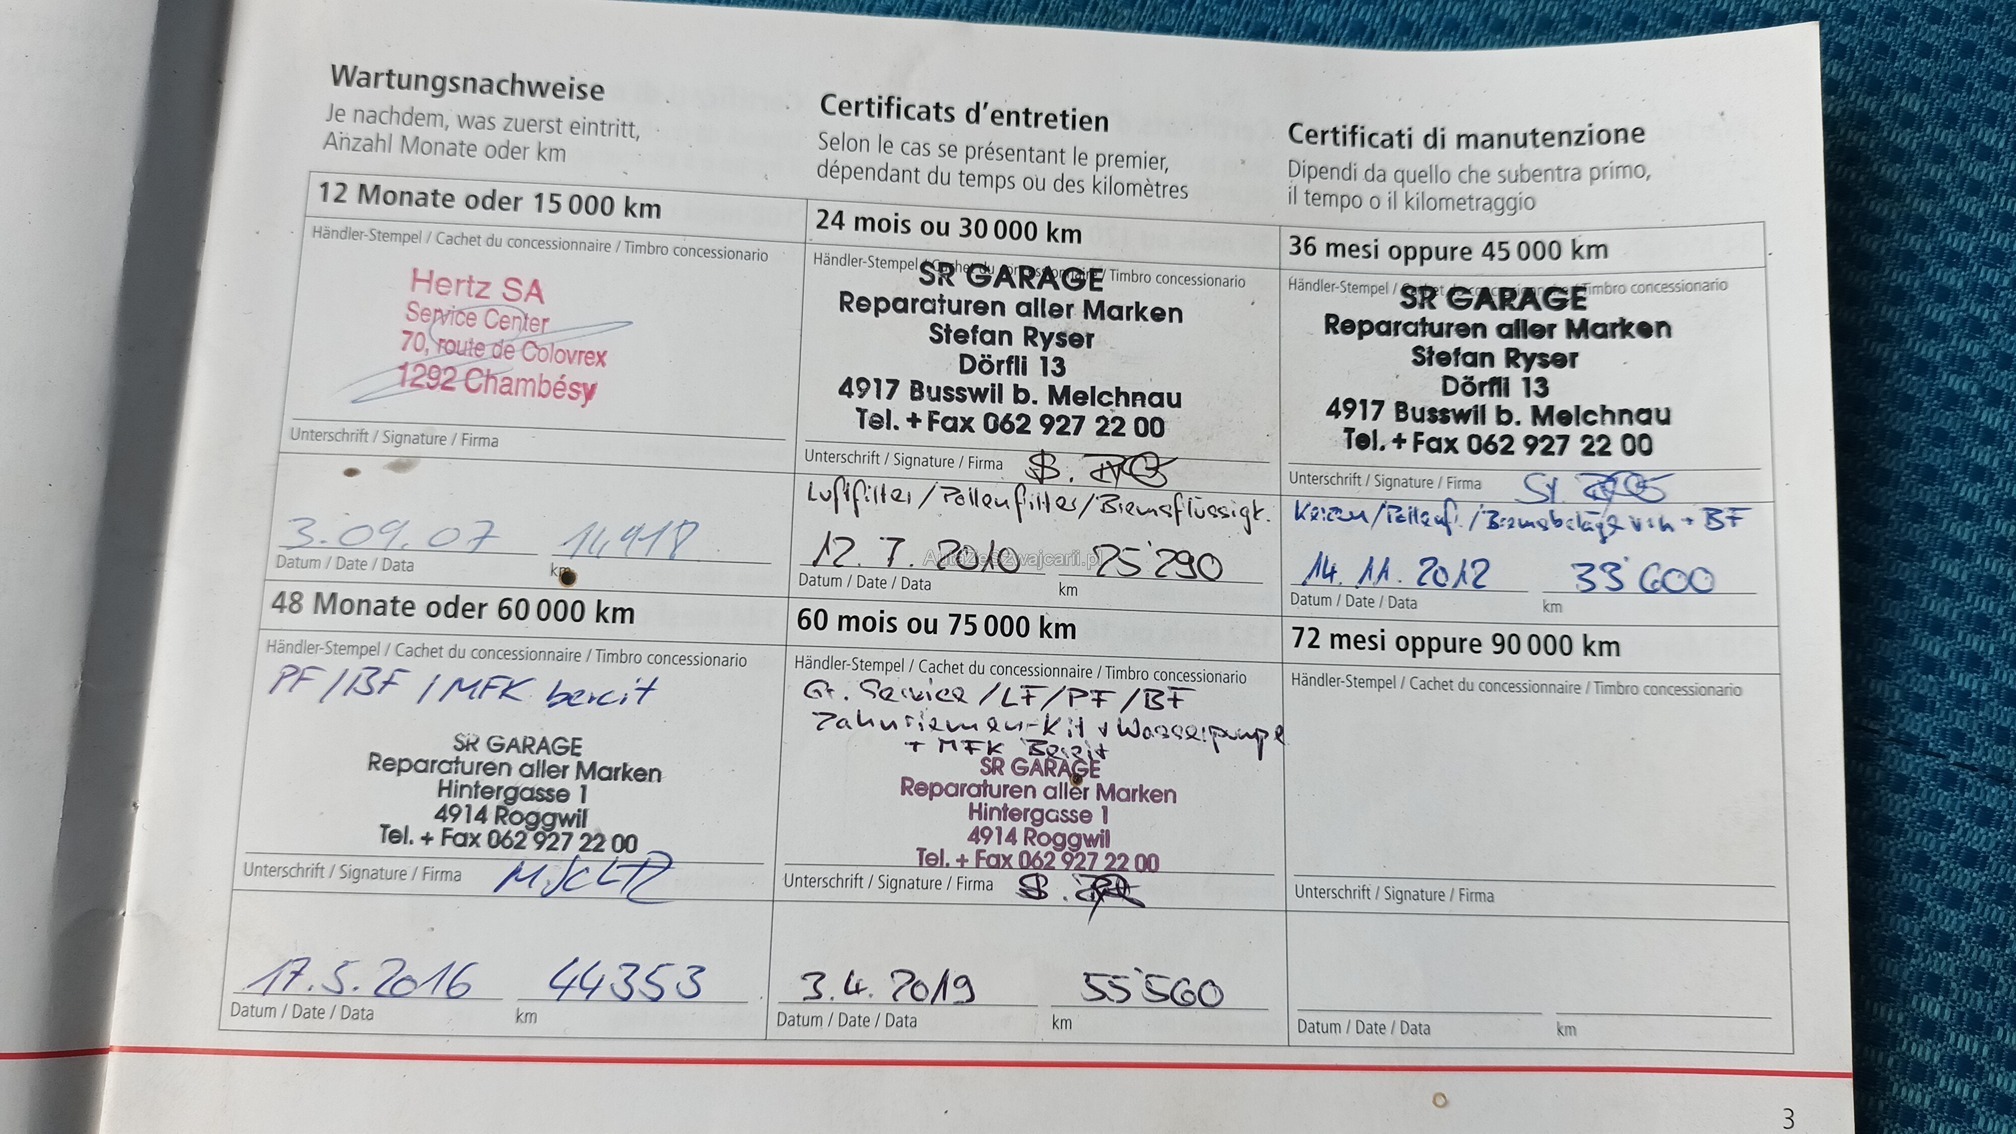 Wartungsnachweise
Je nachdem, was zuerst eintritt,
Anzahl Monate oder km
Certificats d'entretien
Selon le cas se présentant le premier,
dépendant du temps ou des kilomètres
Certificati di manutenzione
Dipendi da quello che subentra primo,
il tempo o il kilometraggio
12 Monate oder 15 000 km
Händler-Stempel / Cachet du concessionnaire / Timbro concessionario
Hertz SA
Service Center
70, route de Colovrex
1292 Chambésy
Unterschrift / Signature / Firma
3.09.07 14918
Datum / Date / Data km
24 mois ou 30 000 km
Händler-Stempel / Cachet du concessionnaire / Timbro concessionario
SR GARAGE
Reparaturen aller Marken
Stefan Ryser
Dörfli 13
4917 Busswil b. Melchnau
Tel. + Fax 062 927 22 00
Unterschrift / Signature / Firma
Luftfilter / Pollenfilter / Bremsflüssigt.
12. 7. 2010 25'290
AutazeSzwajcarii.pl
Datum / Date / Data km
36 mesi oppure 45 000 km
Händler-Stempel / Cachet du concessionnaire / Timbro concessionario
SR GARAGE
Reparaturen aller Marken
Stefan Ryser
Dörfli 13
4917 Busswil b. Melchnau
Tel. + Fax 062 927 22 00
Unterschrift / Signature / Firma
Kerzen / Pollenf. / Bremsbeläge v+h + BF
14. 11. 2012 33'600
Datum / Date / Data km
48 Monate oder 60 000 km
Händler-Stempel / Cachet du concessionnaire / Timbro concessionario
PF / BF / MFK bereit
SR GARAGE
Reparaturen aller Marken
Hintergasse 1
4914 Roggwil
Tel. + Fax 062 927 22 00
Unterschrift / Signature / Firma
17.5.2016 44353
Datum / Date / Data km
60 mois ou 75 000 km
Händler-Stempel / Cachet du concessionnaire / Timbro concessionario
Gr. Service / LF / PF / BF
Zahnriemen-Kit + Wasserpumpe
+ MFK Bereit
SR GARAGE
Reparaturen aller Marken
Hintergasse 1
4914 Roggwil
Tel. + Fax 062 927 22 00
Unterschrift / Signature / Firma
3.4. 2019 55'560
Datum / Date / Data km
72 mesi oppure 90 000 km
Händler-Stempel / Cachet du concessionnaire / Timbro concessionario
Unterschrift / Signature / Firma
Datum / Date / Data km
3